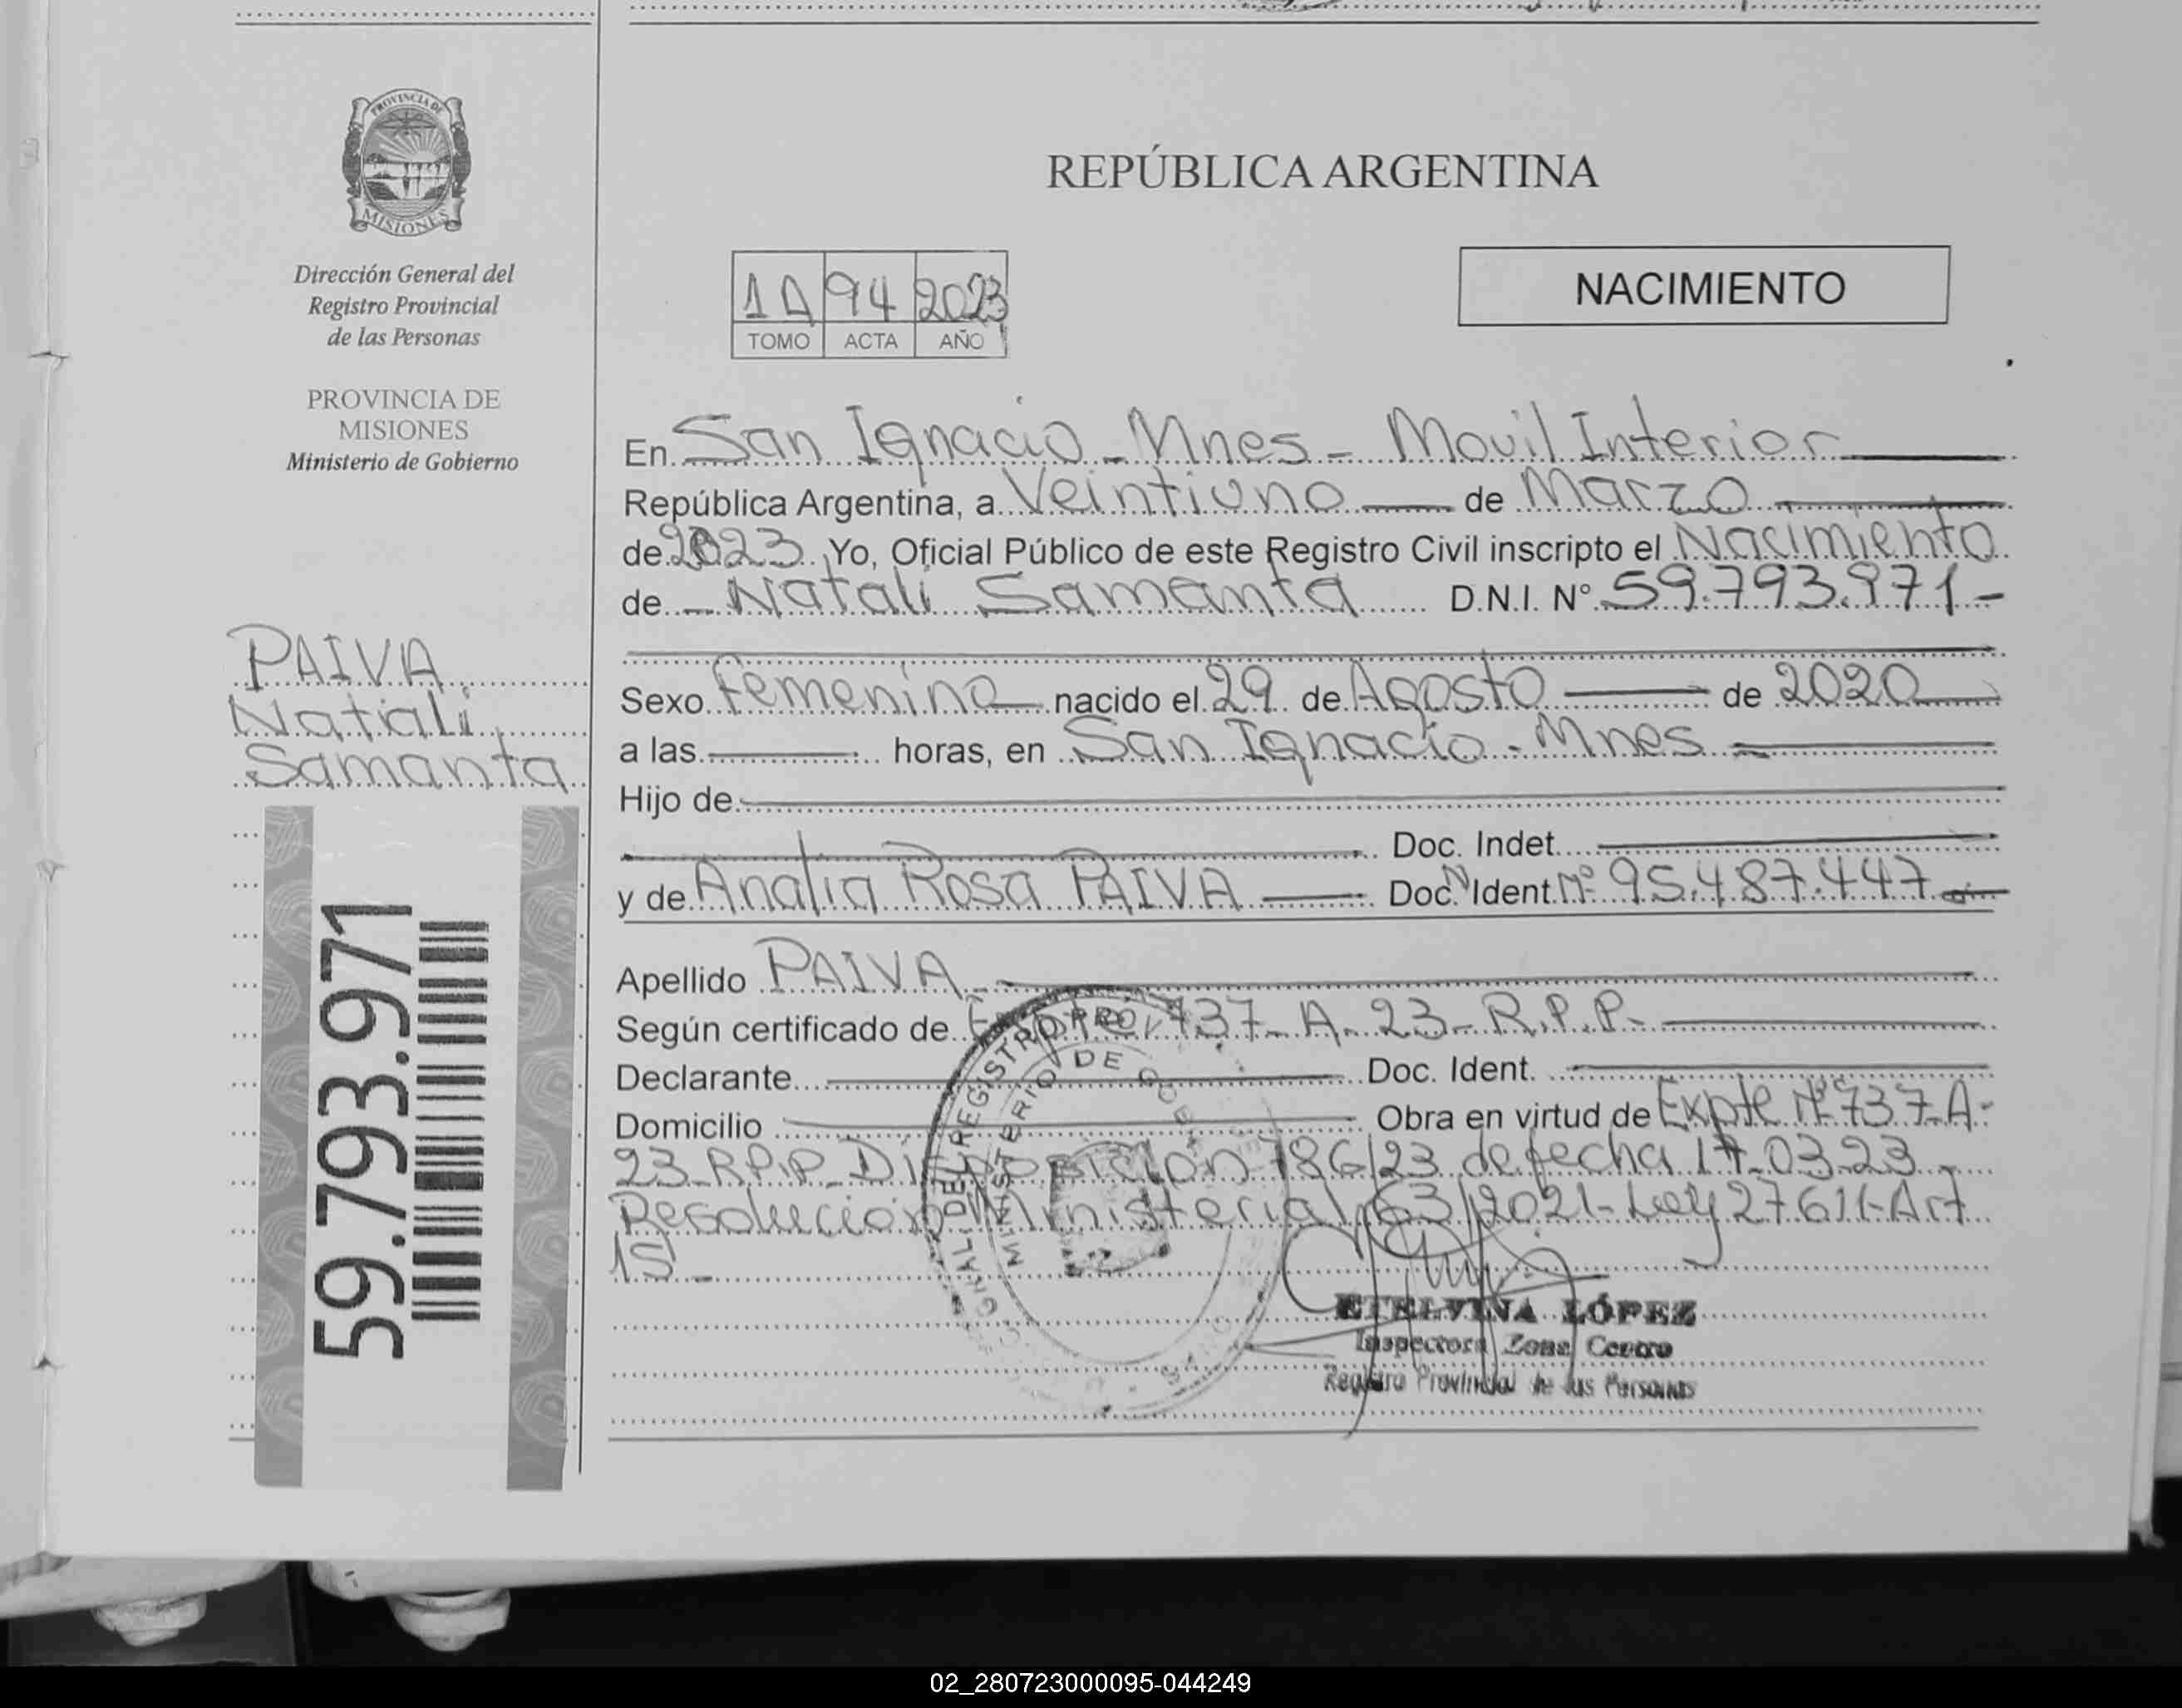 PROVINCIA DE
MISIONES
Dirección General del
Registro Provincial
de las Personas
PROVINCIA DE
MISIONES
Ministerio de Gobierno
PAIVA
Natali
Samanta
59.793.971
REPÚBLICA ARGENTINA
1A 94 2023
TOMO ACTA AÑO
NACIMIENTO
En San Ignacio - Mnes - Movil Interior
República Argentina, a Veintiuno de Marzo
de 2023. Yo, Oficial Público de este Registro Civil inscripto el Nacimiento
de Natali Samanta D.N.I. N° 59.793.971-
Sexo femenino nacido el 29 de Agosto de 2020
a las horas, en San Ignacio - Mnes
Hijo de
Doc. Indet.
y de Analia Rosa PAIVA Doc. N Ident. Nº 95.487.447
Apellido PAIVA
Según certificado de Expte 737-A-23-R.P.P-
Declarante Doc. Ident.
Domicilio Obra en virtud de Expte Nº 737-A-
23-R.P.P-Disposicion 786/23 de fecha 17-03-23-
Resolución Ministerial 63/2021-Ley 27.611-Art
15-
DEL REGISTRO PRO
MINISTERIO DE
ETELVINA LÓPEZ
Inspectora Zona Centro
Registro Provincial de las Personas
02_280723000095-044249